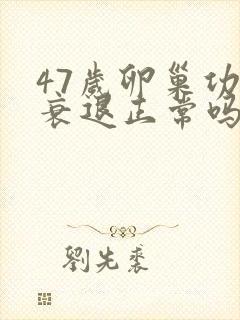 47歲卵巢功
衰退正常吗
劉先裘